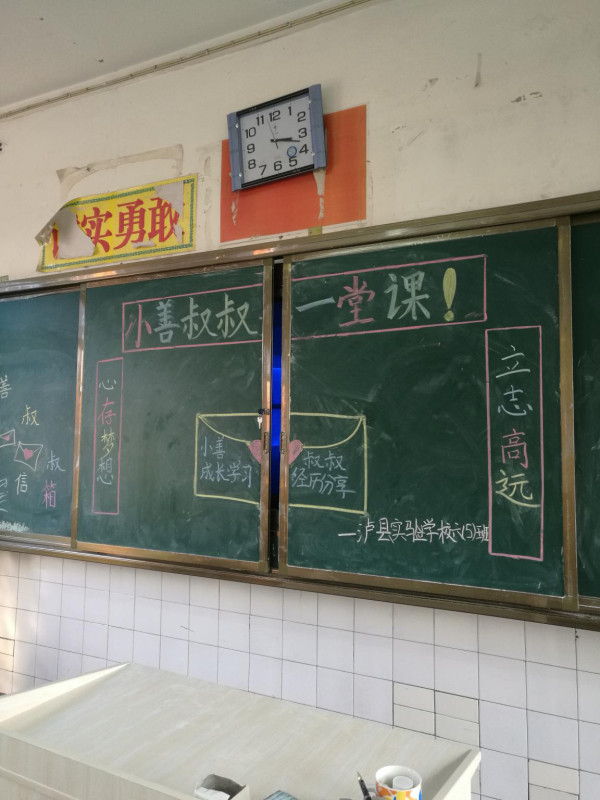 12
1
2
3
4
5
6
7
8
9
10
11
实勇敢
小善叔叔一堂课!
心存梦想
立志高远
小善
成长学习
叔叔
经历分享
—泸县实验学校六(5)班
善
叔
叔
信
箱